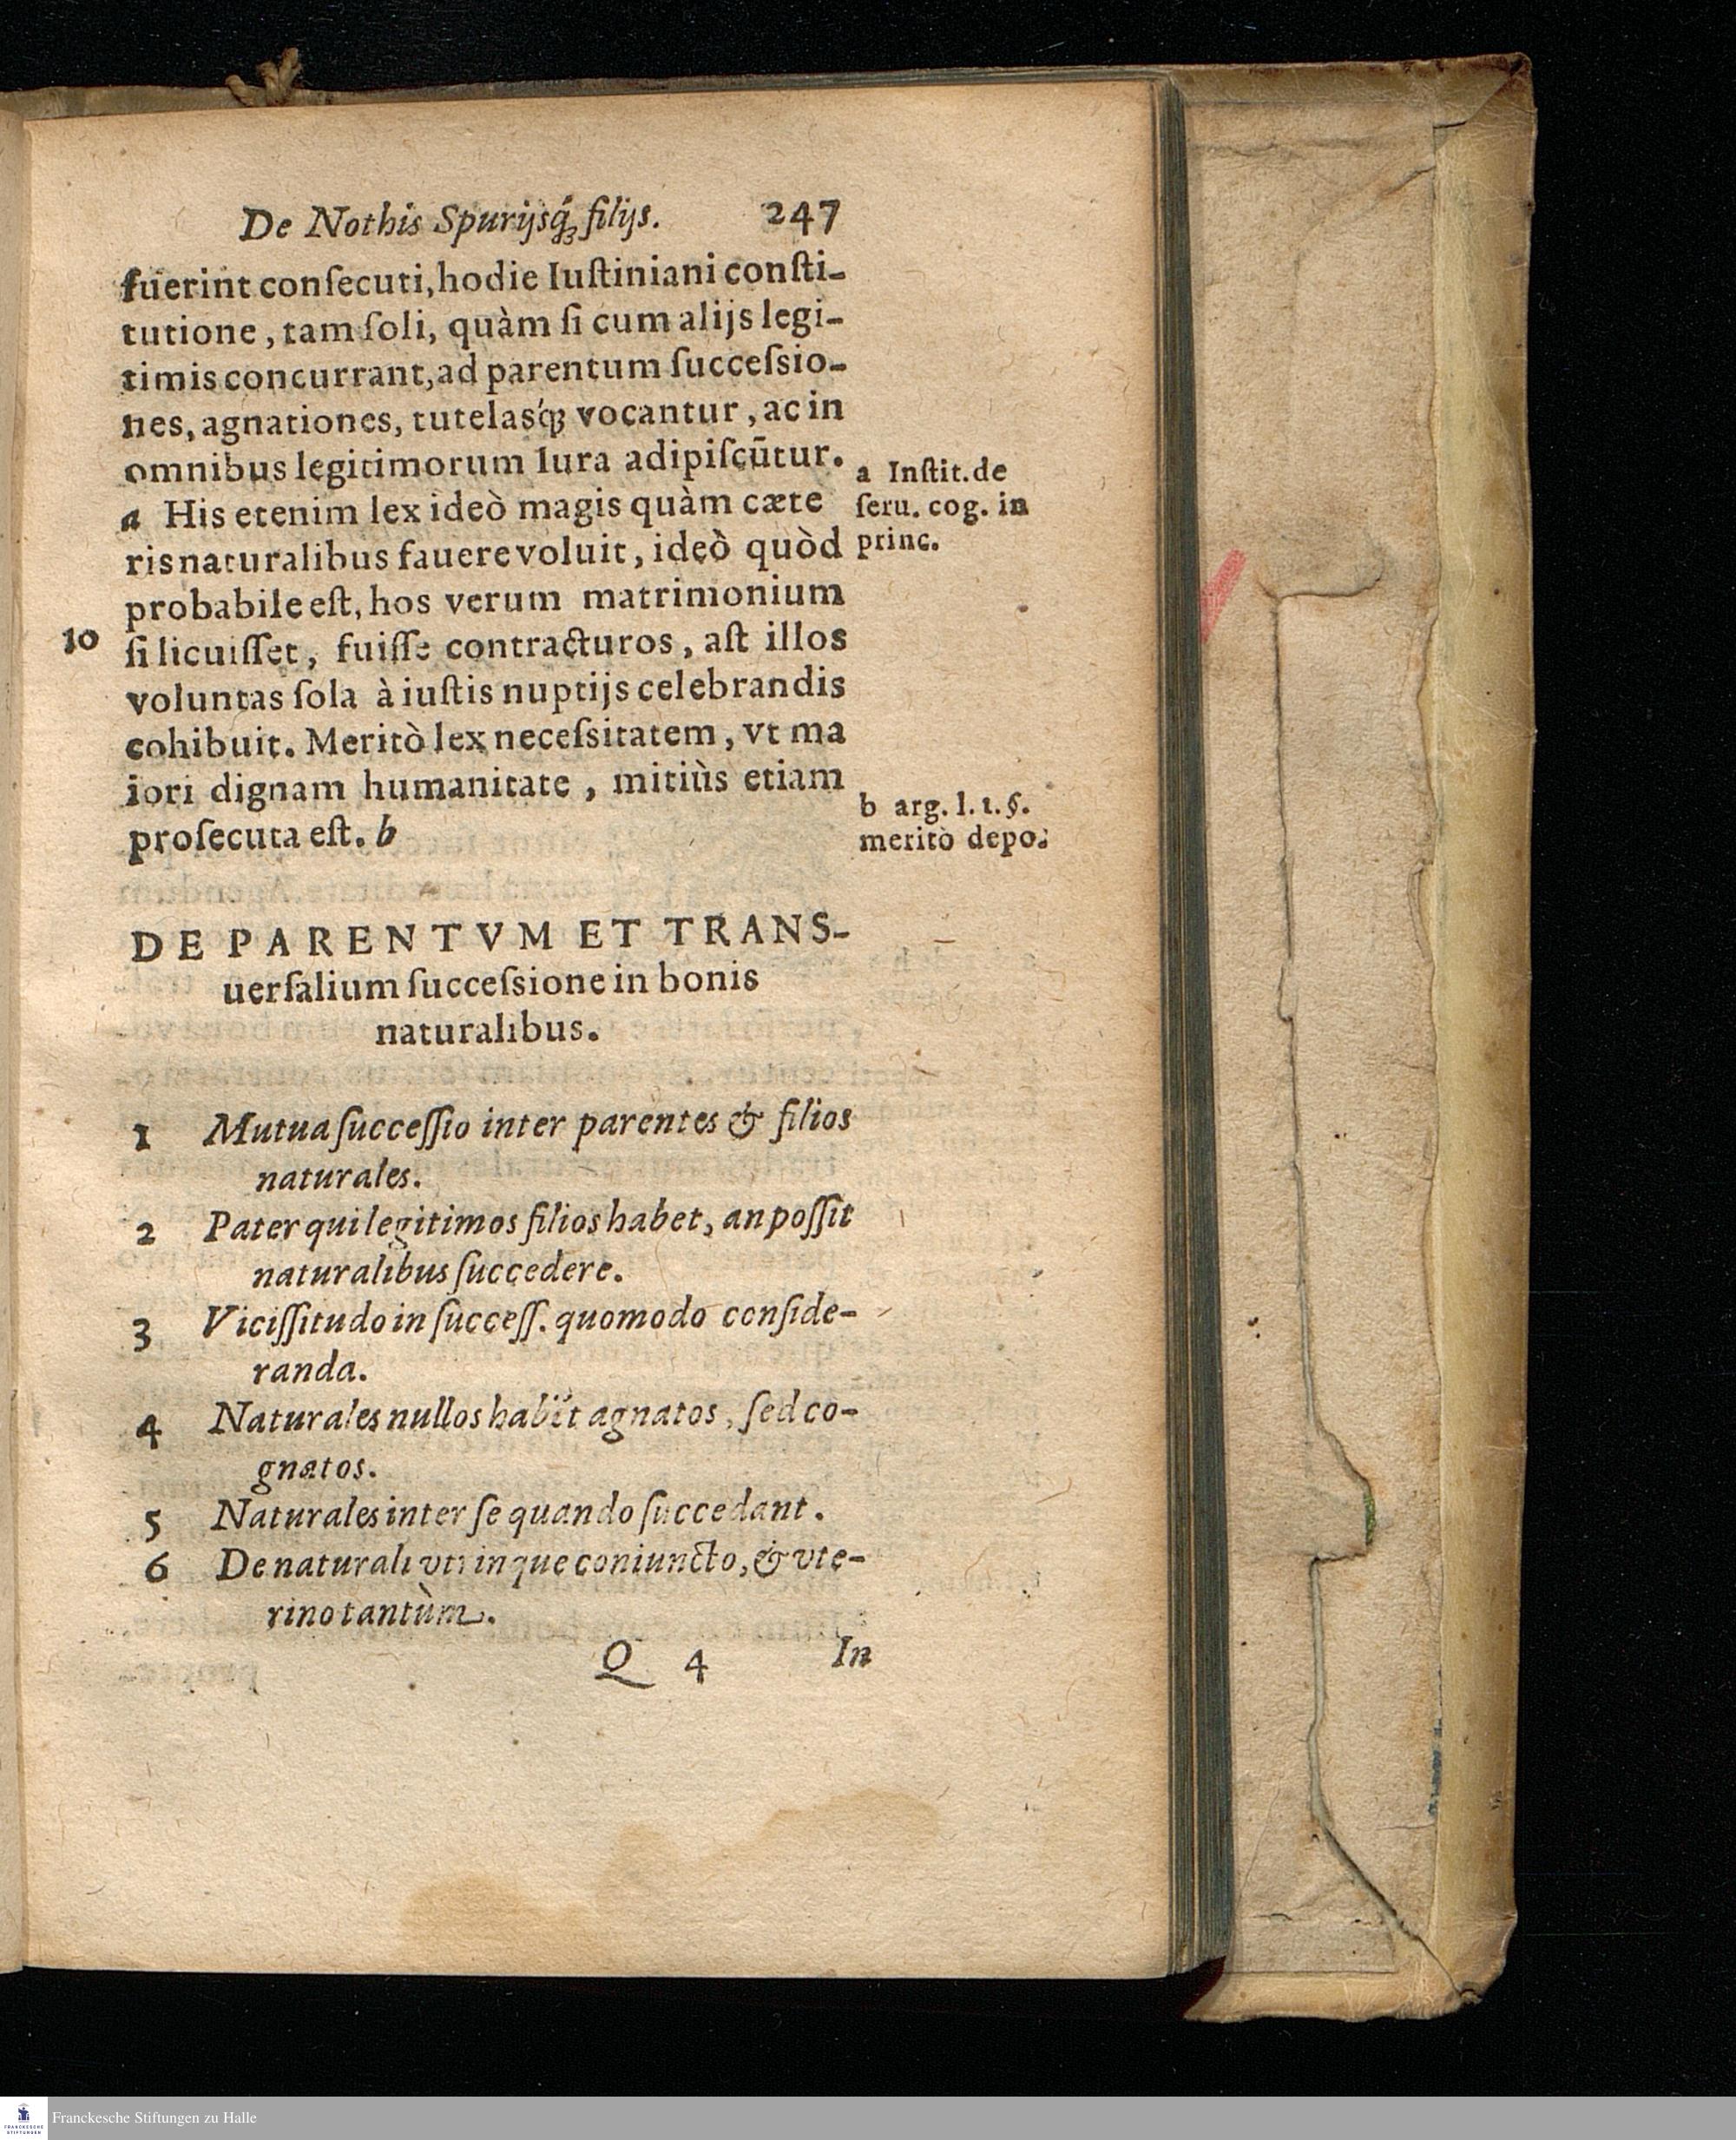 De Nothis Spurijsq́ꝫ filijs. 247
fuerint conſecuti, hodie Iuſtiniani conſti-
tutione, tam ſoli, quàm ſi cum alijs legi-
timis concurrant, ad parentum ſucceſsio-
nes, agnationes, tutelasq́ꝫ vocantur, ac in
omnibus legitimorum Iura adipiſcūtur.
a His etenim lex ideò magis quàm cæte
ris naturalibus fauere voluit, ideò quòd
probabile eſt, hos verum matrimonium
10 ſi licuiſſet, fuiſſe contracturos, aſt illos
voluntas ſola à iuſtis nuptijs celebrandis
cohibuit. Meritò lex neceſsitatem, vt ma
iori dignam humanitate, mitiùs etiam
proſecuta eſt. b
a Inſtit. de
ſeru. cog. in
princ.
b arg. l. 1. §.
meritò depo.
DE PARENTVM ET TRANS-
uerſalium ſucceſsione in bonis
naturalibus.
1 Mutua ſucceſſio inter parentes & filios
naturales.
2 Pater qui legitimos filios habet, an poſſit
naturalibus ſuccedere.
3 Viciſſitudo in ſucceſſ. quomodo conſide-
randa.
4 Naturales nullos habẽt agnatos, ſed co-
gnatos.
5 Naturales inter ſe quando ſuccedant.
6 De naturali vtrinque coniuncto, & vte-
rino tantùm.
Q 4 In
Franckesche Stiftungen zu Halle
FRANCKESCHE
STIFTUNGEN